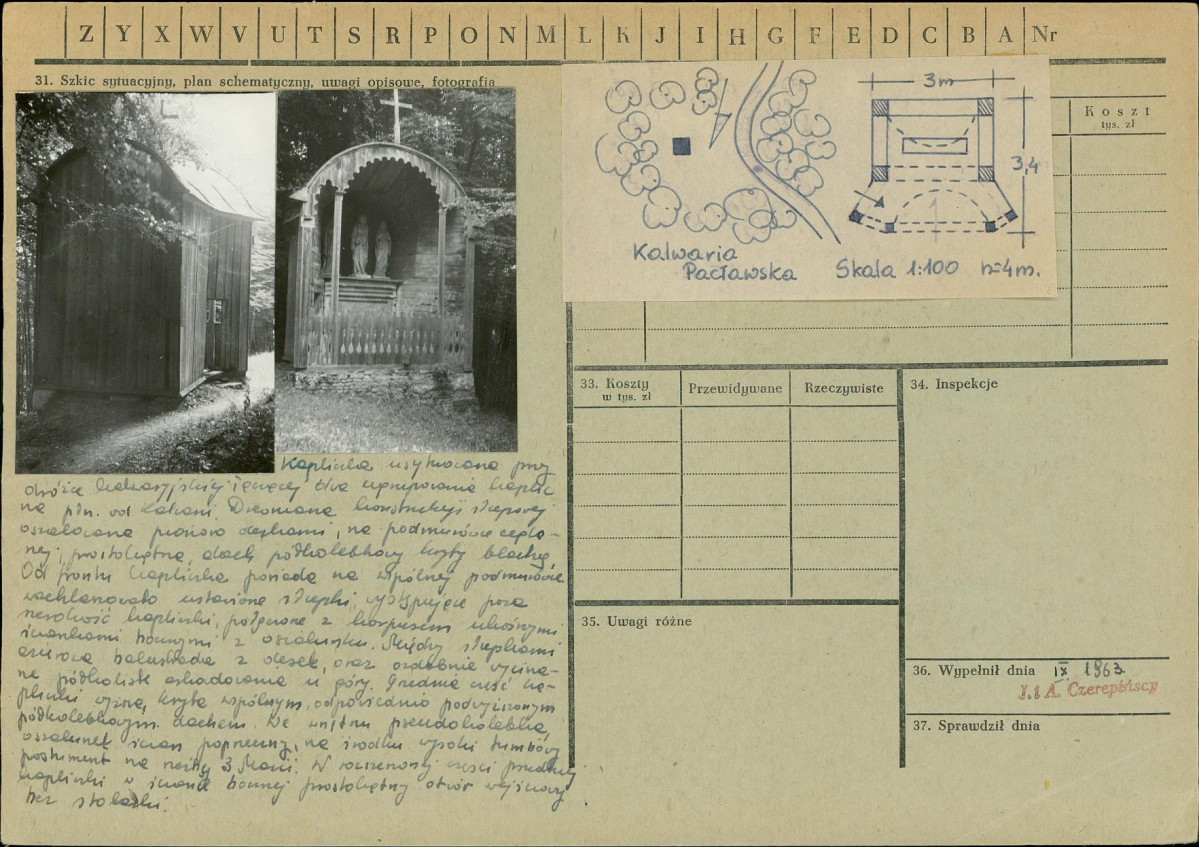 Z Y X W V U T S R P O N M L K J I H G F E D C B A Nr
31. Szkic sytuacyjny, plan schematyczny, uwagi opisowe, fotografia
3m
3,4
Kalwaria
Pacławska
Skala 1:100 h=4m.
Koszt
tys. zł
33. Koszty
w tys. zł
Przewidywane
Rzeczywiste
34. Inspekcje
35. Uwagi różne
36. Wypełnił dnia IX 1963.
J. i A. Czerepińscy
37. Sprawdził dnia
Kapliczka usytuowana przy
dróżce kalwaryjskiej łączącej dwa ugrupowania kaplic
na płn. od Drewniana konstrukcji słupowej
oszalowana pionowo deskami, na podmurówce cegla-
nej, prostokątna, dach półkolebkowy kryty blachą.
Od frontu kapliczka posiada na wspólnej podmurówce
wachlarzowato ustawione słupki, występujące poza
szerokość kapliczki, połączone z korpusem ukośnymi
ściankami bocznymi z oszalunku. Między słupkami
ażurowa balustrada z desek, oraz ozdobnie wycina-
ne półkoliste arkadowanie u góry. Średnia część ka-
pliczki wyższa, kryta wspólnym, odpowiednio podwyższonym
półkolebkowym dachem. We wnętrzu pseudokolebka,
oszalunek ścian poprzeczny, na środku wysoki tumbowy
postument na rzeźby 3 Marii. W rozszerzonej części przedniej
kapliczki w ścianie bocznej prostokątny otwór wejściowy
bez stolarki.